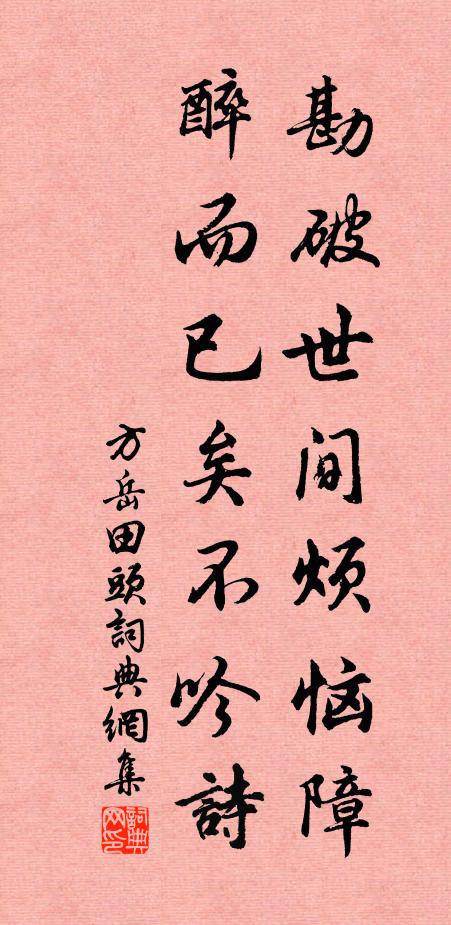 勘破世间烦恼障
醉而已矣不吟詩
方岳田頭詞典網集
詞典
网印